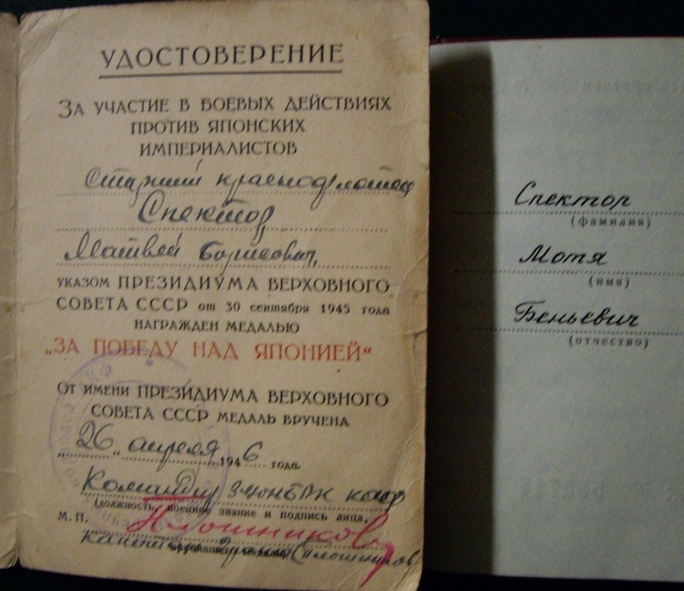 УДОСТОВЕРЕНИЕ
ЗА УЧАСТИЕ В БОЕВЫХ ДЕЙСТВИЯХ
ПРОТИВ ЯПОНСКИХ
ИМПЕРИАЛИСТОВ
старший краснофлотец
Спектор
Матвей Борисович
УКАЗОМ ПРЕЗИДИУМА ВЕРХОВНОГО
СОВЕТА СССР от 30 сентября 1945 года
НАГРАЖДЕН МЕДАЛЬЮ
„ЗА ПОБЕДУ НАД ЯПОНИЕЙ“
ОТ ИМЕНИ ПРЕЗИДИУМА ВЕРХОВНОГО
СОВЕТА СССР МЕДАЛЬ ВРУЧЕНА
„26„ апреля 1946 года.
Командир
(должность, военное звание и подпись лица,
М. П.
Плотников
капитан
Спектор
(фамилия)
Мотя
(имя)
Беньевич
(отчество)